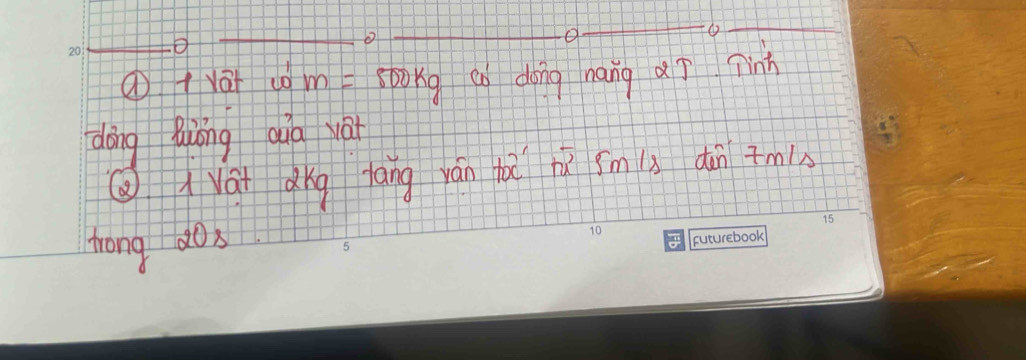 20
① 1 vật có m = 500kg có động năng 2J. Tính
động lượng của vật
② 1 vật 2kg tăng vận tốc từ 5m/s đến 7m/s
trong 20s.
5 10 15
Futurebook